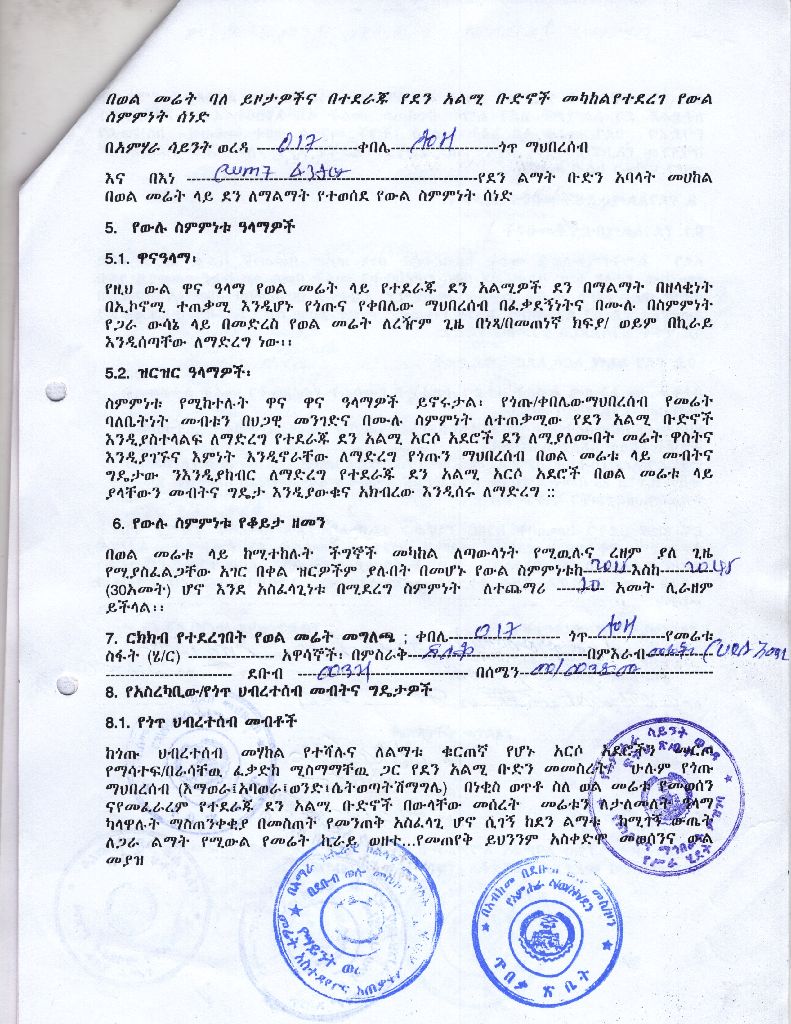 በወል መሬት ባለ ይዞታዎችና በተደራጁ የደን አልሚ ቡድኖች መካከልየተደረገ የውል
ስምምነት ሰነድ
በአምሃራ ሳይንት ወረዳ ---------017---------ቀበሌ---------------ጎጥ ማህበረሰብ
እና በእነ -------------------------------የደን ልማት ቡድን አባላት መሀከል
በወል መሬት ላይ ደን ለማልማት የተወሰደ የውል ስምምነት ሰነድ
5. የውሉ ስምምነቱ ዓላማዎች
5.1. ዋናዓላማ፡
የዚህ ውል ዋና ዓላማ የወል መሬት ላይ የተደራጁ ደን አልሚዎች ደን በማልማት በዘላቂነት
በኢኮኖሚ ተጠቃሚ እንዲሆኑ የጎጡና የቀበሌው ማህበረሰብ በፈቃደኝነትና በሙሉ በስምምነት
የጋራ ውሳኔ ላይ በመድረስ የወል መሬት ለረዥም ጊዜ በነጻ/በመጠነኛ ክፍያ/ ወይም በኪራይ
እንዲሰጣቸው ለማድረግ ነው፡፡
5.2. ዝርዝር ዓላማዎች፡
ስምምነቱ የሚከተሉት ዋና ዋና ዓላማዎች ይኖሩታል፡ የጎጡ/ቀበሌውማህበረሰብ የመሬት
ባለቤትነት መብቱን በህጋዊ መንገድና በሙሉ ስምምነት ለተጠቃሚው የደን አልሚ ቡድኖች
እንዲያስተላልፍ ለማድረግ የተደራጁ ደን አልሚ አርሶ አደሮች ደን ለሚያለሙበት መሬት ዋስትና
እንዲያገኙና እምነት እንዲኖራቸው ለማድረግ የጎጡን ማህበረሰብ በወል መሬቱ ላይ መብትና
ግዴታው ንእንዲያከብር ለማድረግ የተደራጁ ደን አልሚ አርሶ አደሮች በወል መሬቱ ላይ
ያላቸውን መብትና ግዴታ እንዲያውቁና አክብረው እንዲሰሩ ለማድረግ ::
6. የውሉ ስምምነቱ የቆይታ ዘመን
በወል መሬቱ ላይ ከሚተከሉት ችግኞች መካከል ለጣውላነት የሚዉሉና ረዘም ያለ ጊዜ
የሚያስፈልጋቸው አገር በቀል ዝርዎችም ያሉበት በመሆኑ የውል ስምምነቱከ---------እስከ---------
(30አመት) ሆኖ እንደ አስፈላጊነቱ በሚደረግ ስምምነት ለተጨማሪ ---10--- አመት ሊራዘም
ይችላል፡፡
7. ርክክብ የተደረገበት የወል መሬት መግለጫ ; ቀበሌ-----017----- ጎጥ -----------የመሬቱ
ስፋት (ሄ/ር) ---------------- አዋሳኞች፡ በምስራቅ------------------በምእራብ---------
------------------------ ደቡብ ------------------------ በሰሜን------------------------
8. የአስረካቢው/የጎጥ ህብረተሰብ መብትና ግዴታዎች
8.1. የጎጥ ህብረተሰብ መብቶች
ከጎጡ ህብረተሰብ መሃከል የተሻሉና ለልማቱ ቁርጠኛ የሆኑ አርሶ አደሮችን መርጦ
የማሳተፍ/በራሳቸዉ ፈቃድከ ሚስማማቸዉ ጋር የደን አልሚ ቡድን መመስረት/ ሁሉም የጎጡ
ማህበረሰብ (እማወራ፤አባወራ፤ወንድ፤ሴትወጣትሽማግሌ) በነቂስ ወጥቶ ስለ ወል መሬቱ የመወሰን
ናየመፈራረም የተደራጁ ደን አልሚ ቡድኖች በውላቸው መሰረት መሬቱን ለታለመለት ዓላማ
ካላዋሉት ማስጠንቀቂያ በመስጠት የመንጠቅ አስፈላጊ ሆኖ ሲገኝ ከደን ልማቱ ከሚገኝ ውጤት
ለጋራ ልማት የሚውል የመሬት ኪራይ ወዘተ...የመጠየቅ ይህንንም አስቀድሞ መወሰንና ውል
መያዝ
ጥበቃ ጽ ቤት